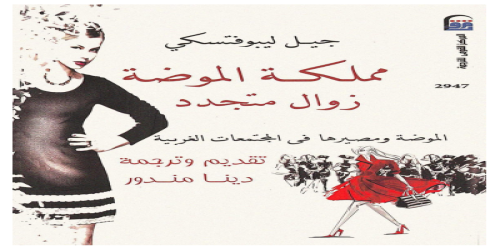 جيل ليبوفتسكي
مملكة الموضة
زوال متجدد
2947
الموضة ومصيرها فى المجتمعات الغربية
تقديم وترجمة
دينا مندور